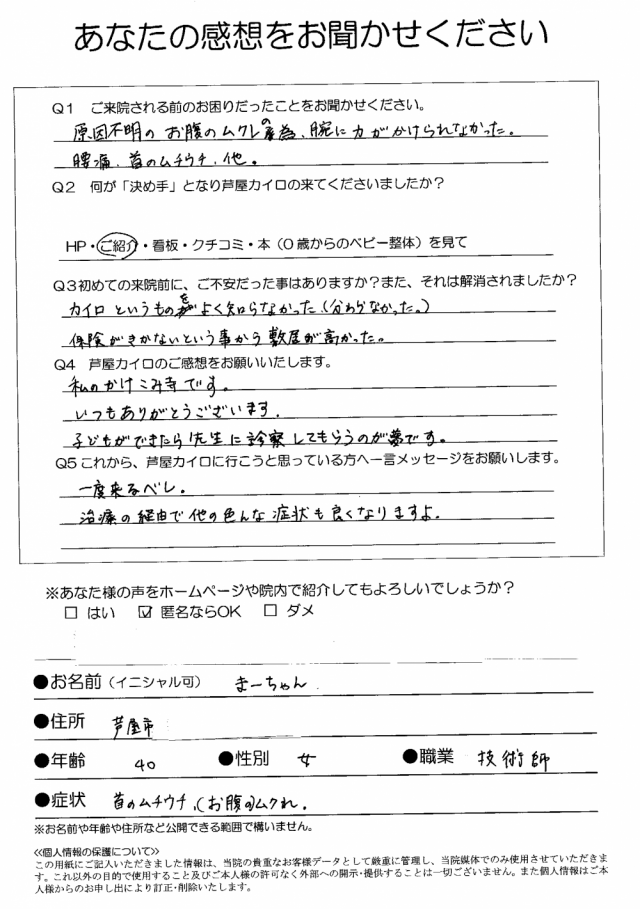 あなたの感想をお聞かせください
Q1 ご来院される前のお困りだったことをお聞かせください。
原因不明のお腹のムクレの為、腕に力がかけられなかった。
腰痛、首のムチウチ、他。
Q2 何が「決め手」となり芦屋カイロの来てくださいましたか?
HP・ご紹介・看板・クチコミ・本(0歳からのベビー整体)を見て
Q3初めての来院前に、ご不安だった事はありますか?また、それは解消されましたか?
カイロというものをよく知らなかった(分わらなかった。)
保険がきかないという事から敷居が高かった。
Q4 芦屋カイロのご感想をお願いいたします。
私のかけこみ寺です。
いつもありがとうございます.
子どもができたら先生に診察してもらうのが夢です。
Q5これから、芦屋カイロに行こうと思っている方へ一言メッセージをお願いします。
一度来るべし。
治療の経由で他の色んな症状も良くなりますよ.
※あなた様の声をホームページや院内で紹介してもよろしいでしょうか?
□ はい ☑ 匿名ならOK □ ダメ
●お名前(イニシャル可) まーちゃん
●住所 芦屋市
●年齢 40 ●性別 女 ●職業 技術師
●症状 首のムチウチ、(お腹の)ムクれ.
※お名前や年齢や住所など公開できる範囲で構いません。
≪個人情報の保護について≫
この用紙にご記入いただきました情報は、当院の貴重なお客様データとして厳重に管理し、当院媒体でのみ使用させていただきま
す。これ以外の目的で使用すること及びご本人様の許可なく外部への開示・提供することは一切ございません。また個人情報はご本
人様からのお申し出により訂正・削除いたします。